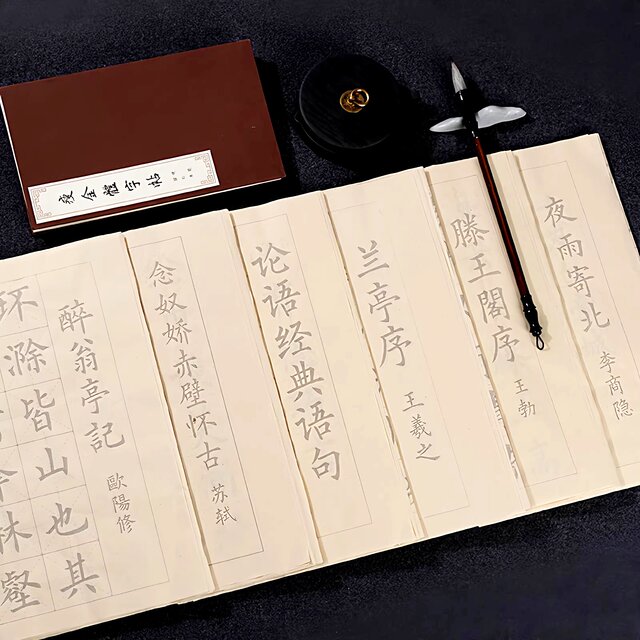 瘦金體字帖
夜雨寄北
李商隐
滕王閣序
王勃
兰亭序
王羲之
论语经典语句
念奴娇赤壁怀古
苏轼
醉翁亭記
歐陽修
环滁皆山也其
林壑